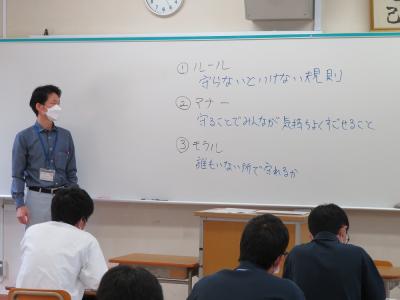 ① ルール
守らないといけない規則
② マナー
守ることでみんなが気持ちよくすごせること
③ モラル
誰もいない所で守れるか
己